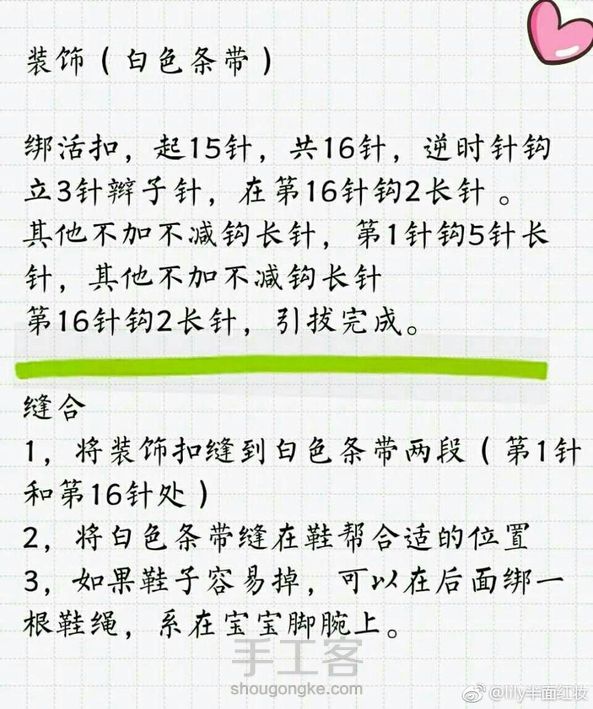 装饰（白色条带）
绑活扣，起15针，共16针，逆时针钩
立3针辫子针，在第16针钩2长针。
其他不加不减钩长针，第1针钩5针长
针，其他不加不减钩长针
第16针钩2长针，引拔完成。
缝合
1，将装饰扣缝到白色条带两段（第1针
和第16针处）
2，将白色条带缝在鞋帮合适的位置
3，如果鞋子容易掉，可以在后面绑一
根鞋绳，系在宝宝脚腕上。
手工客
shougongke.com
@lily半面红妆